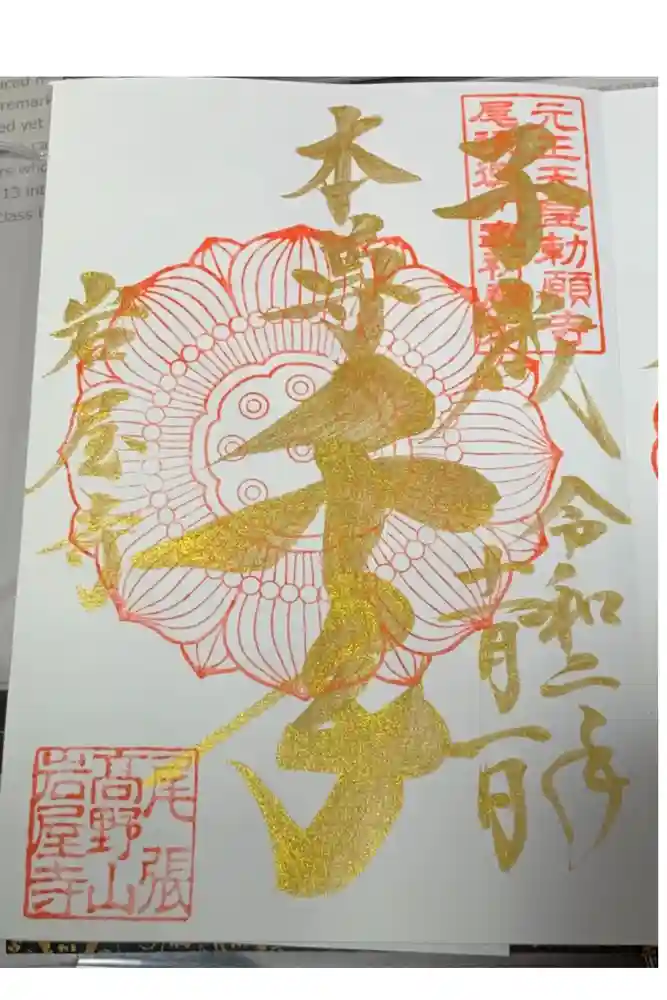 元正天皇勅願寺
令和二年
十一月一日
本尊
千手
岩屋寺
尾張
高野山
岩屋寺